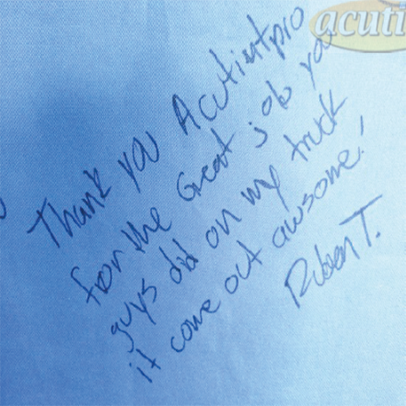 acuti
Thank you Acutintpro
for the Great job you
guys did on my truck
it come out awsome!
Ruben T.